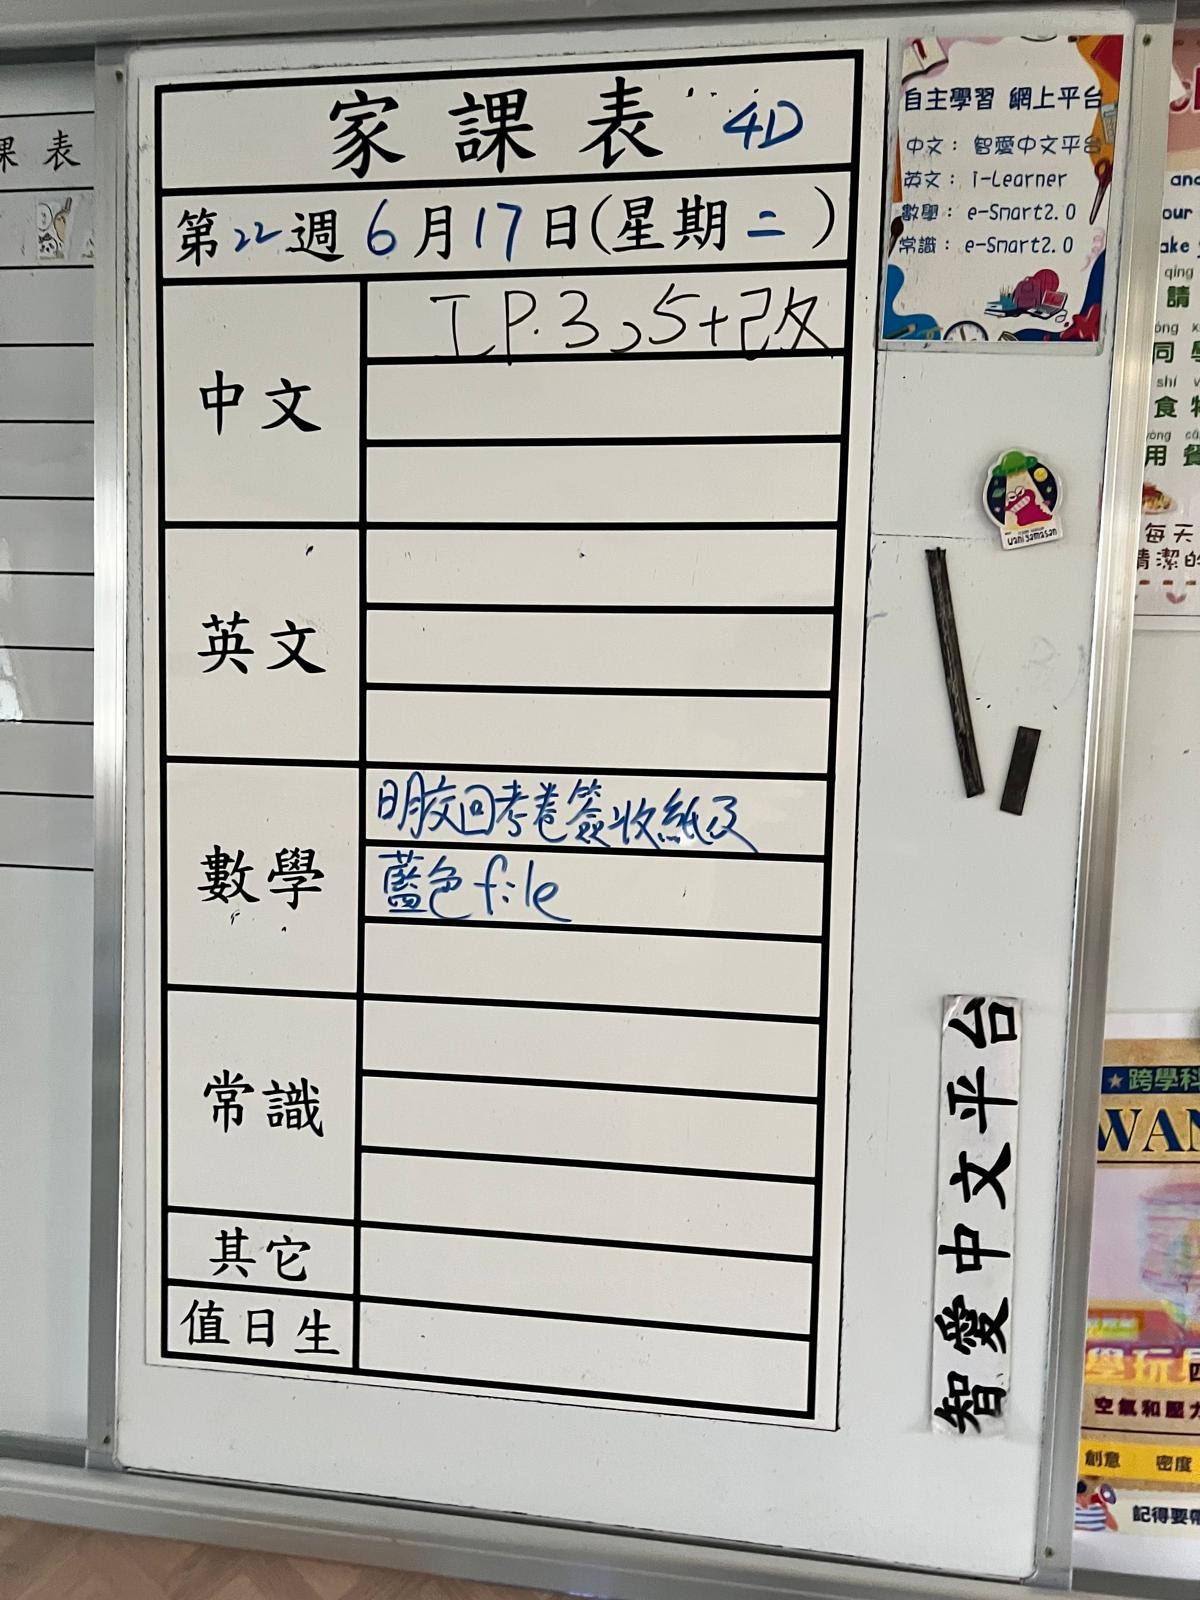 家課表 4D
第22週6月17日(星期二)
中文
工P.3,5+改
英文
數學
明交回考卷簽收紙及
藍色file
常識
其它
值日生
課表
自主學習 網上平台
中文: 智愛中文平台
英文: i-Learner
數學: e-Smart2.0
常識: e-Smart2.0
uanigamasan
智愛中文平台
and
our
ake
qíng
請
同學
shí
食物
用餐
每天
清潔的
跨學科
WAN
學玩
四
空氣和壓力
創意 密度
記得要帶